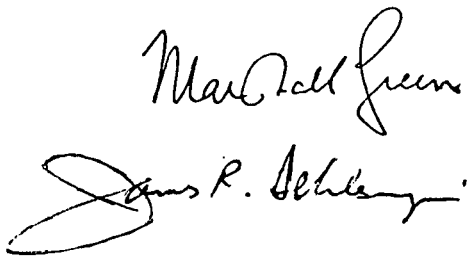 Marshall Green
James R. Schlesinger